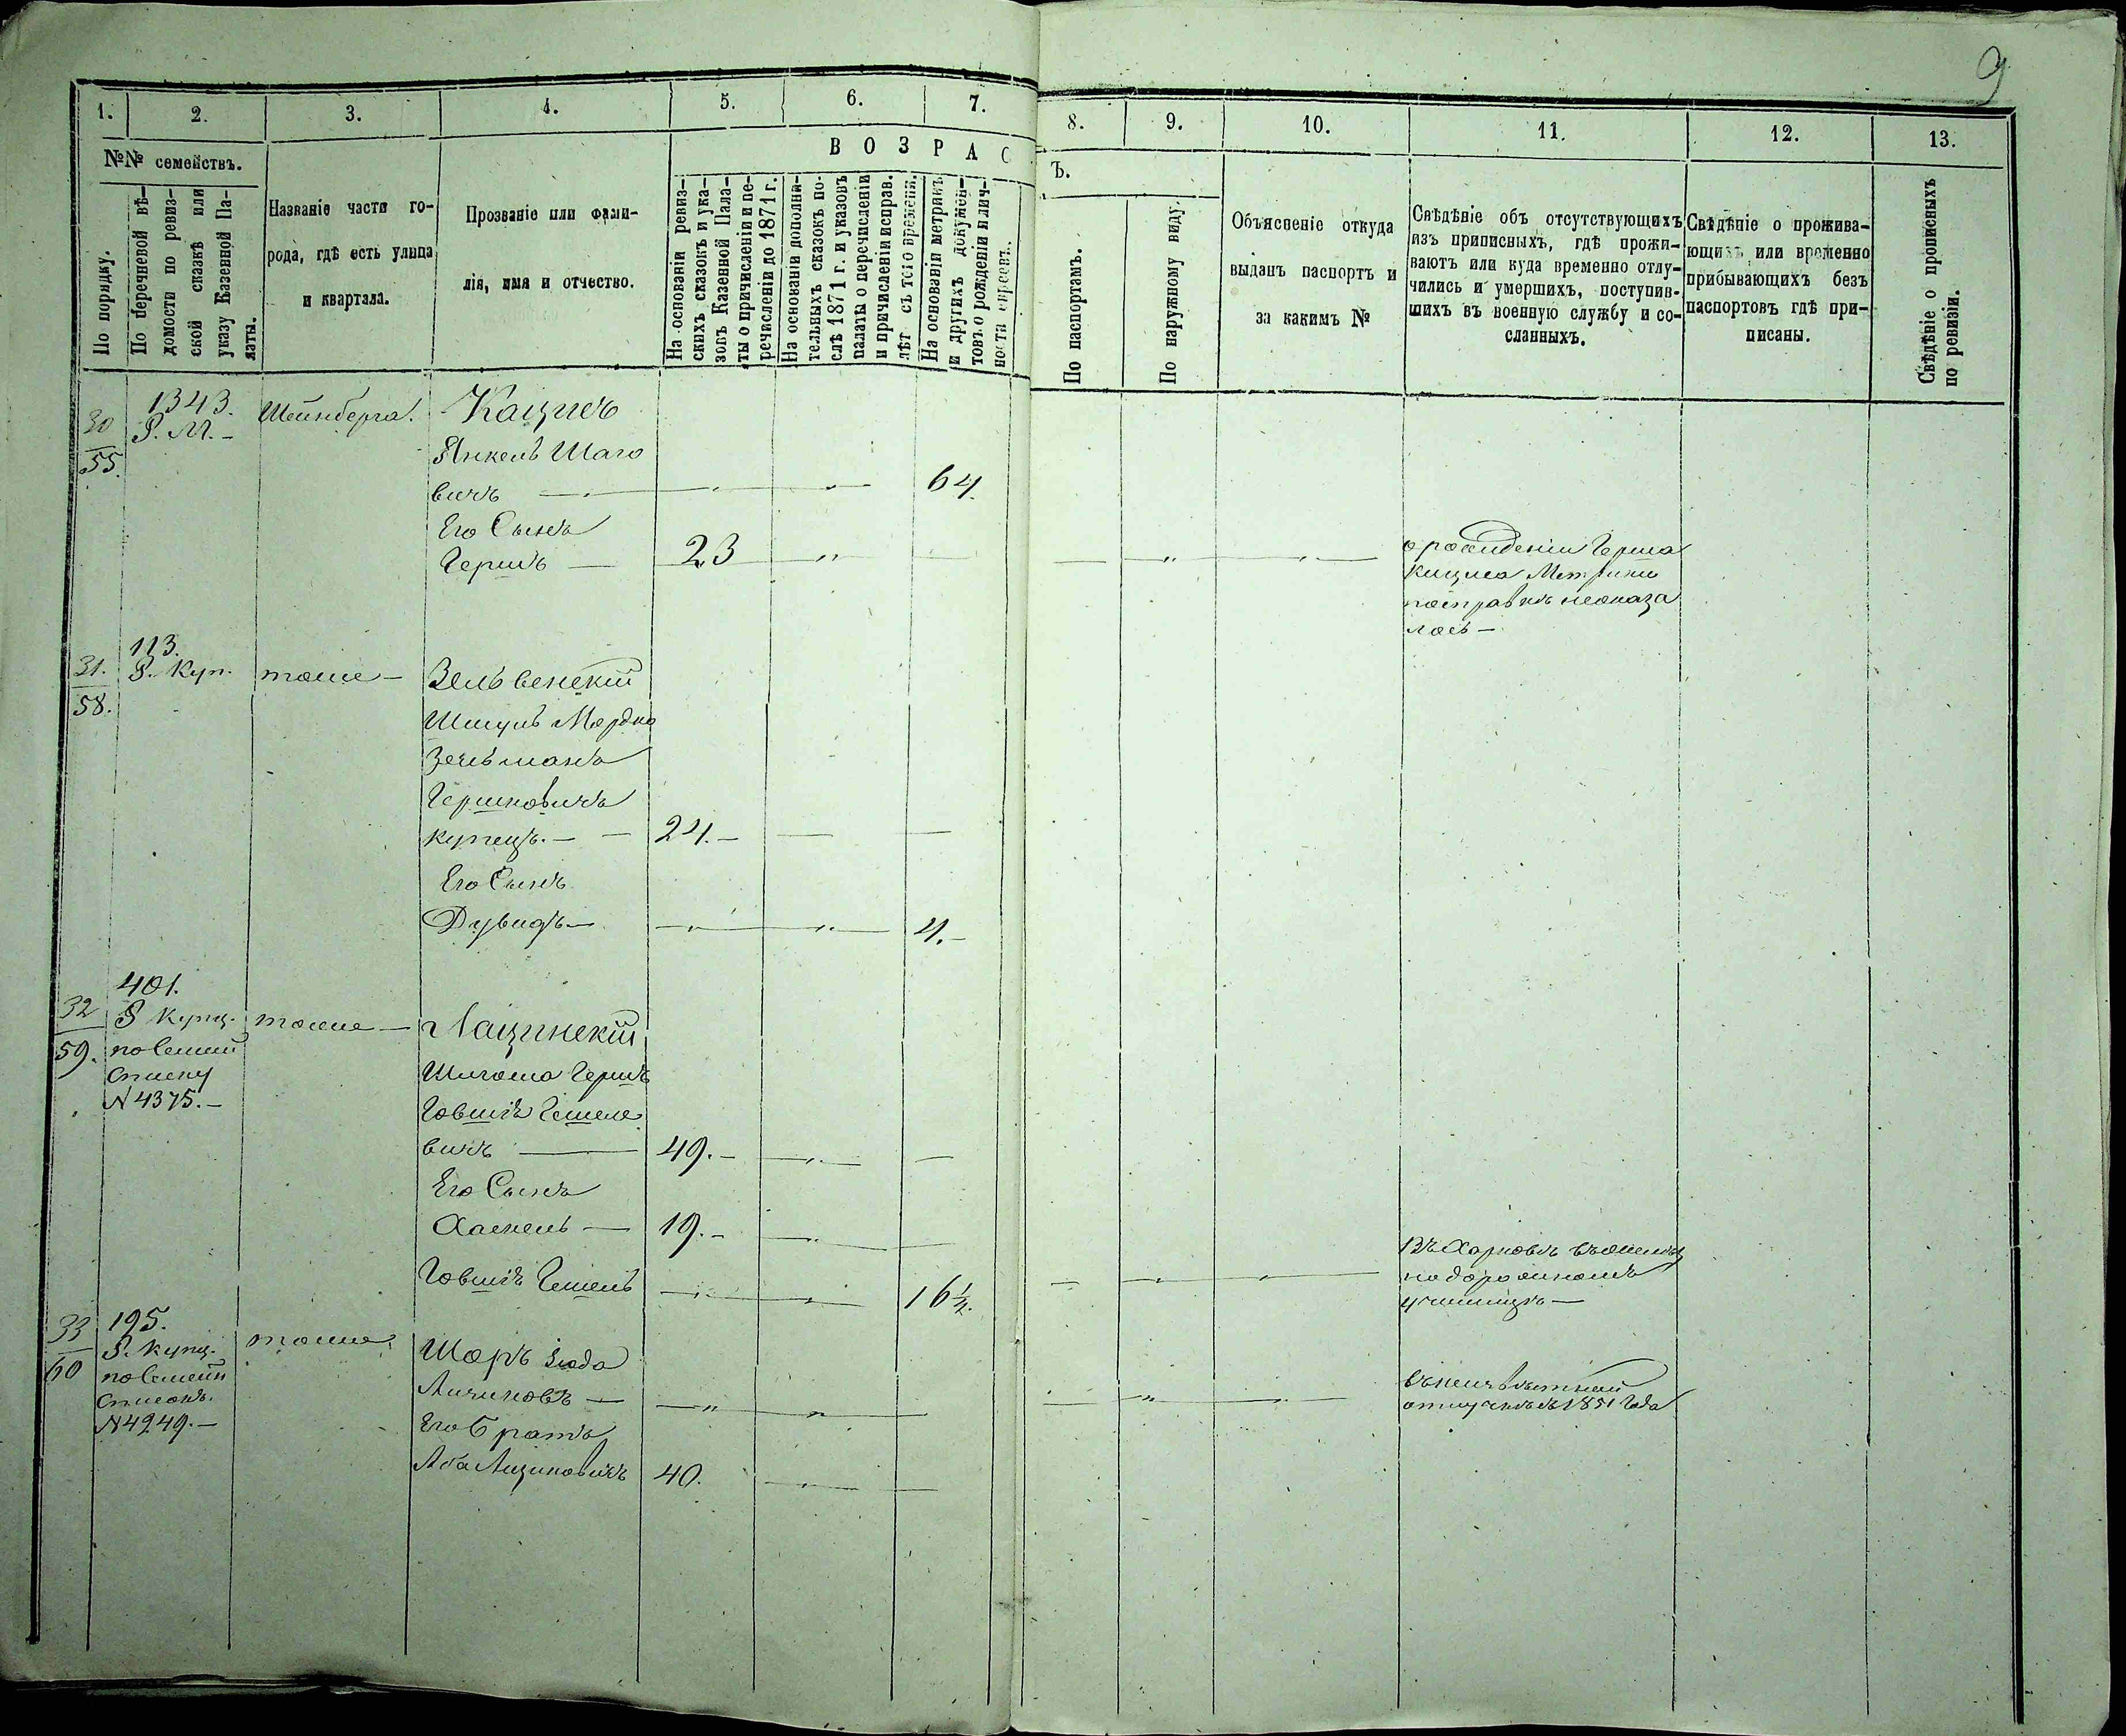 9
1. 2. 3. 4. 5. 6. 7. 8. 9. 10. 11. 12. 13.
№№ семействъ.
По порядку.
По перечневой вѣ-
домости по ревиз-
ской сказкѣ или
указу Казенной Па-
латы.
Названіе части го-
рода, гдѣ есть улица
и квартала.
Прозваніе или фами-
лія, имя и отчество.
В О З Р А С
Ъ.
На основаніи ревиз-
скихъ сказокъ и ука-
зовъ Казенной Пала-
ты о причисленіи и пе-
речисленіи до 1871 г.
На основаніи дополни-
тельныхъ сказокъ по-
слѣ 1871 г. и указовъ
палаты о перечисленіи
и причисленіи исправ.
лѣт съ того времени.
На основаніи метрикъ
и другихъ докумен-
товъ о рожденіи и лич-
ности евреевъ.
По паспортамъ.
По наружному виду.
Объясненіе откуда
выданъ паспортъ и
за какимъ №
Свѣдѣніе объ отсутствующихъ
изъ приписныхъ, гдѣ прожи-
ваютъ или куда временно отлу-
чились и умершихъ, поступив-
шихъ въ военную службу и со-
сланныхъ.
Свѣдѣніе о прожива-
ющихъ или временно
прибывающихъ безъ
паспортовъ гдѣ при-
писаны.
Свѣдѣніе о прописныхъ
по ревизіи.
30
55.
1343.
Р. М. -
Шейнберга.
Кацнеъ
Янкель
вичъ — 64.
Его Сынъ
Гершъ — 23
о рожденіи Герша
Метрики
по справкѣ неоказа
лось —
31.
58.
113.
Р. Куп.
тоже —
Зельвенскій
Шмуль Мордко
Зельманъ
Гершковичъ
купецъ. — 24. —
Его Сынъ
Дувидъ — 4. —
32
59.
401.
Р Купц.
по Семей
Списку
№ 4375. —
тоже —
Лацинскій
Гершъ
Говшій Гешеле
вичъ — 49. —
Его Сынъ
Хаскель — 19. —
Говшій Гешель 16 ½.
Въ Харковѣ въ желѣз
нодорожномъ
училищѣ —
33
60
195.
Р. Купц.
по Семейн
Списокъ.
№ 4249. —
тоже
Шоръ Іюда
Ицковъ —
въ неизвѣстной
отлучкѣ съ 1851 Года
Его Братъ
Аба Ицковичъ 40.